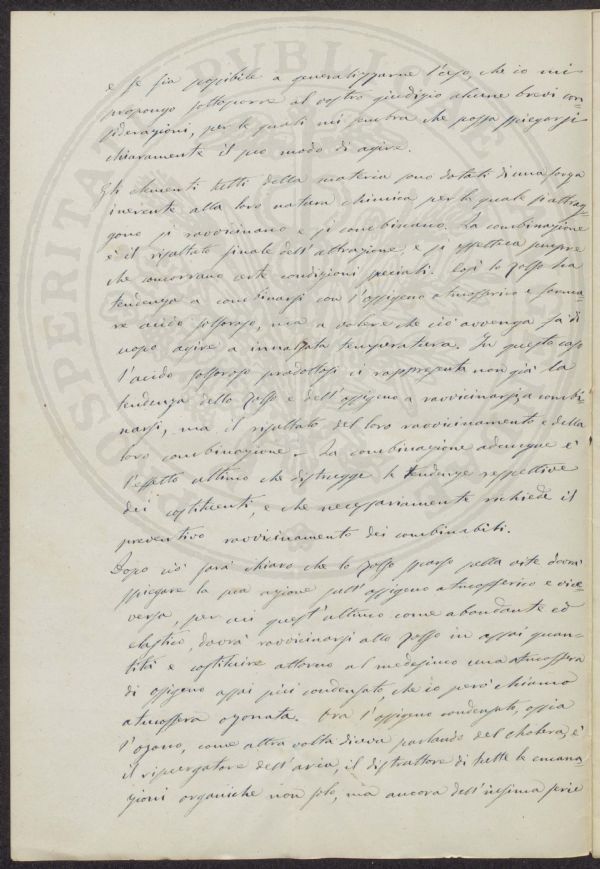 e se fia possibile a generalizzarne l'uso, che io mi
propongo sottoporre al vostro giudizio alcune brevi con=
siderazioni, per le quali mi sembra che possa spiegarsi
chiaramente il suo modo di agire.
Gli elementi tutti della materia sono dotati di una forza
inerente alla loro natura chimica per la quale si attrag=
gono si ravvicinano e si combinano. La combinazione
è il risultato finale dell'attrazione e si effettua sempre
che concorrano certe condizioni speciali. Così lo zolfo ha
tendenza a combinarsi con l'ossigeno atmosferico e forma=
re acido solforoso, ma a volere che ciò avvenga fa di
uopo agire a innalzata temperatura. In questo caso
l'acido solforoso prodottosi ci rappresenta non già la
tendenza dello zolfo e dell'ossigeno a ravvicinarsi, a combi=
narsi, ma il risultato del loro ravvicinamento e della
loro combinazione. La combinazione adunque è
l'effetto ultimo che distrugge le tendenze respettive
dei costituenti, e che necessariamente richiede il
preventivo ravvicinamento dei combinabili.
Dopo ciò sarà chiaro che lo zolfo sparso sulla vite dovrà
spiegare la sua azione sull'ossigeno atmosferico e vice=
versa, per cui quest'ultimo come abondante ed
elastico, dovrà ravvicinarsi allo zolfo in assai quan=
tità e costituire attorno al medesimo una atmosfera
di ossigeno assai più condensato, che io però chiamo
atmosfera ozonata. Ora l'ossigeno condensato, ossia
l'ozono, come altra volta diceva parlando del cholera, è
il ripurgatore dell'aria, il distruttore di tutte le emana=
zioni organiche non solo, ma ancora dell'infima serie
PROSPERITATI PVBLICAE